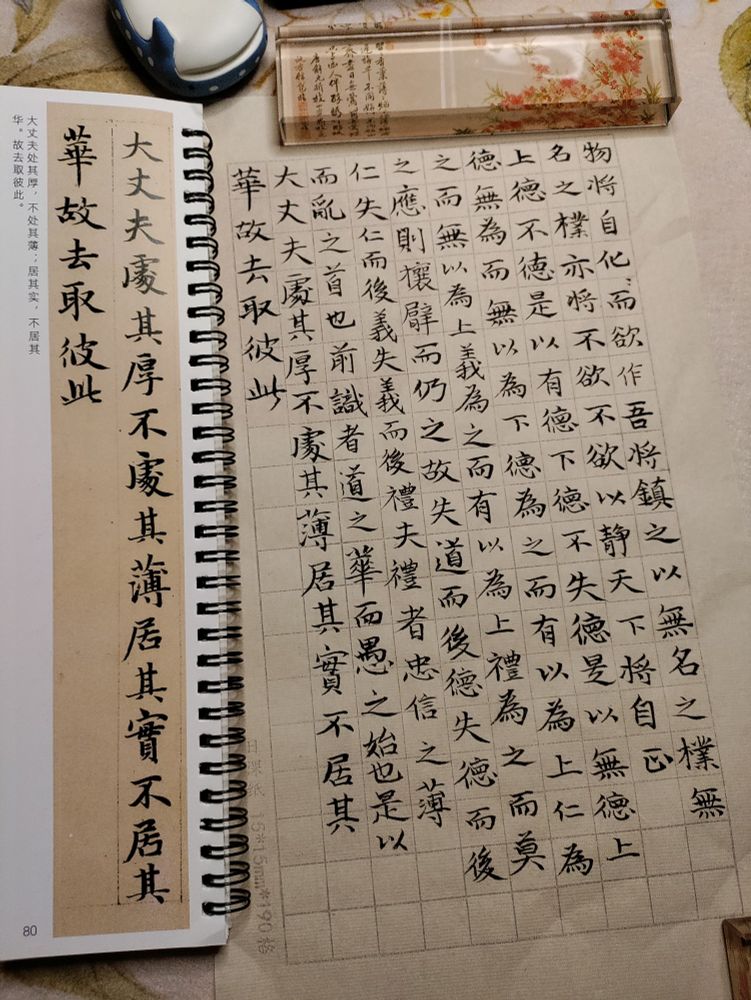 大丈夫处其厚，不处其薄；居其实，不居其
华。故去取彼此。
大丈夫處其厚不處其薄居其實不居其
華故去取彼此
80
物將自化而欲作吾將鎮之以無名之樸無
名之樸亦將不欲不欲以静天下將自正
上德不德是以有德下德不失德是以無德上
德無為而無以為下德為之而有以為上仁為
之而無以為上義為之而有以為上禮為之而莫
之應則攘臂而仍之故失道而後德失德而後
仁失仁而後義失義而後禮夫禮者忠信之薄
而亂之首也前識者道之華而愚之始也是以
大丈夫處其厚不處其薄居其實不居其
華故去取彼此
15*15mm*190格